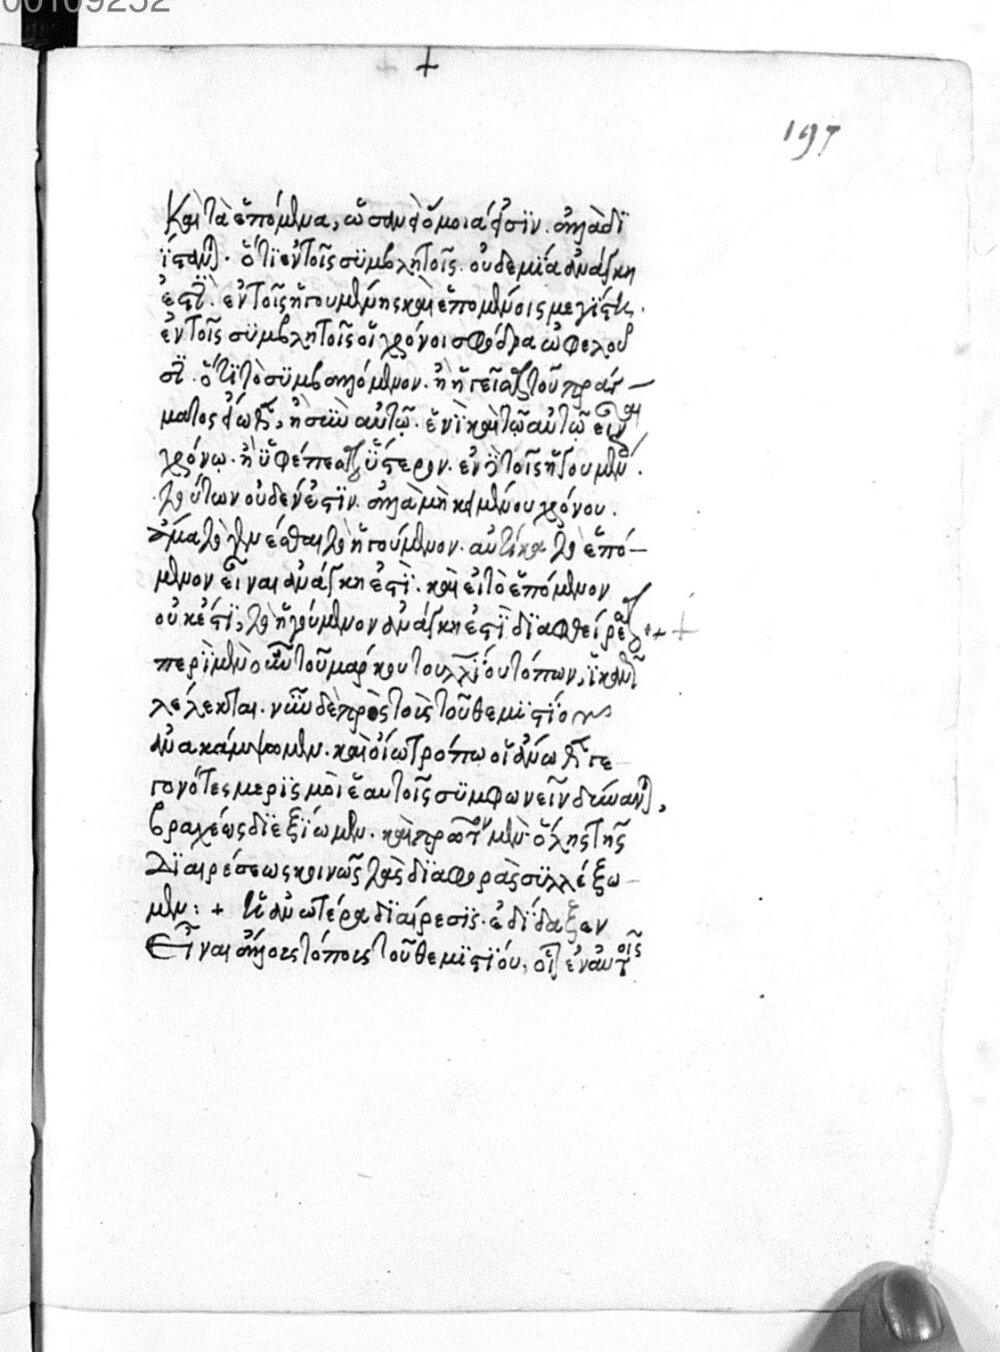 00109252
197
Καὶ τὰ ἑπόμενα, ὡσὰν ὅμοιά φησϊν. ἀλλὰ δϊ
ΐστανται. ὅτϊ ἐν τοῖς σϋμβλητοῖς. οὐδεμϊα ἀνάγκη
ἐστΐ. ἐν τοῖς ἡγουμένης καὶ ἑπομένοις μεγΐστη.
ἐν τοῖς σϋμβλητοῖς οἱ χρόνοι σφόδρα ὠφελοῦ
σϊ. ὅτϊ τὸ σϋμβαλλόμενον. ἢ ἡγεῖται τοῦ πράγ
ματος, ἢ σὺν αὐτῷ. ἑνῒ καὶ τῷ αὐτῷ
χρόνῳ. ἢ ὑφέπεται ὕστερον. ἐν τοῖς ἡγουμέν.
τούτων οὐδέν ἐστϊν. ἀλλὰ μὴ χρόνου.
ἅμα τὸ γενέσθαι τὸ ἡγούμενον. αὐτίκα τὸ ἑπό
μενον εἶναι ἀνάγκη ἐστΐ. καὶ εἰ τὸ ἑπόμενον
οὐκ ἔστϊ, τὸ ἡγούμενον ἀνάγκη ἐστῒ δϊαφθείρεται
περῒ μὲν οὖν τοῦ μάρκου τουλλΐου τόπων, ϊκανῶς
λέλεκται. νῦν δὲ πρὸς τοὺς τοῦ θεμϊστΐου
ἀνακάμψωμεν. καὶ οἵω τρόπω οἱ ἄνωθεν γε
γονότες μερϊσμοὶ ἑαυτοῖς σϋμφωνεῖν δύνανται,
βραχέως δϊεξΐωμεν. καὶ πρῶτον μὲν ὅλης τῆς
Δϊαιρέσεως κοινῶς τὰς δϊαφορὰς σϋλλέξω
μεν: + Ἡ ἀνωτέρα δϊαίρεσϊς. ἐδΐδαξεν
Εἶναι ἄλλους τόπους τοῦ θεμϊστΐου, οἳ ἐν αὐτοῖς